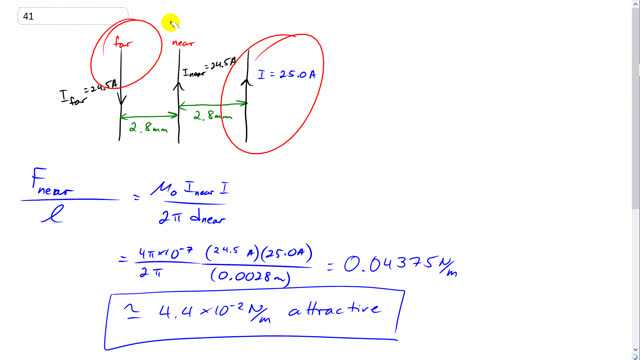 41
far near
I far = 24.5A I near = 24.5A I = 25.0A
2.8mm 2.8mm
F near / l = μ₀ I near I / 2π d near
= 4π×10⁻⁷ / 2π (24.5 A)(25.0A) / (0.0028m) = 0.04375 N/m
≃ 4.4 ×10⁻² N/m attractive